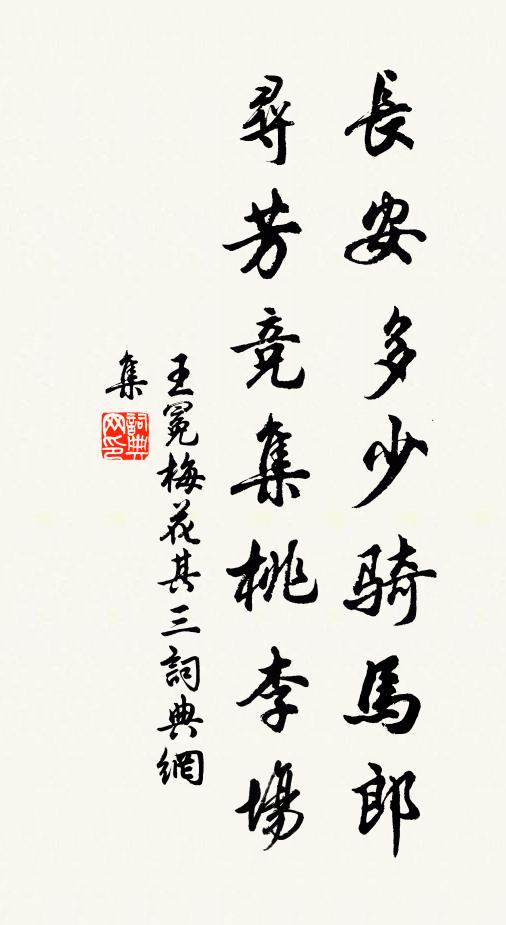 長安多少騎馬郎
尋芳竞集桃李場
王冕梅花其三詞典網
集
詞典
网印